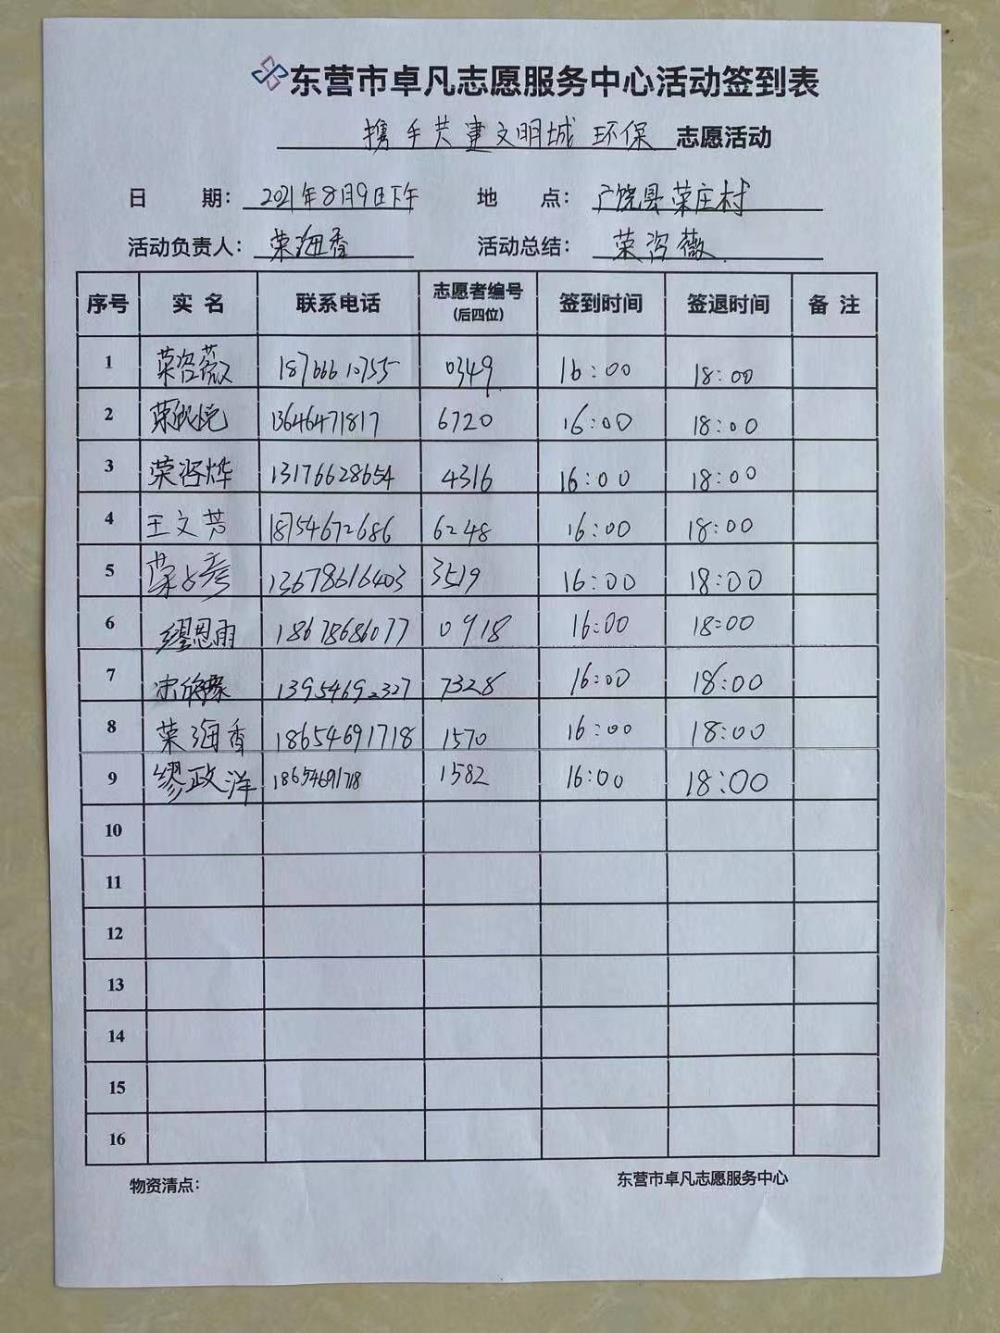 东营市卓凡志愿服务中心活动签到表
携手共建文明城 环保 志愿活动
日 期: 2021年8月9日下午 地 点: 广饶县荣庄村
活动负责人: 荣海香 活动总结: 荣咨薇
序号 实 名 联系电话 志愿者编号 (后四位) 签到时间 签退时间 备 注
1 荣咨薇 18766610755 0349 16:00 18:00
2 13646471817 6720 16:00 18:00
3 荣咨烨 13176628654 4316 16:00 18:00
4 王文芳 18754672686 6248 16:00 18:00
5 13678616403 3519 16:00 18:00
6 缪恩雨 18678686077 0918 16:00 18:00
7 13954692327 7328 16:00 18:00
8 荣海香 18654691718 1570 16:00 18:00
9 缪政洋 18654691718 1582 16:00 18:00
10
11
12
13
14
15
16
物资清点: 东营市卓凡志愿服务中心